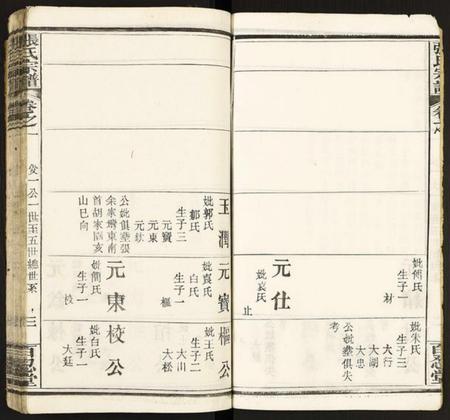 張氏宗譜
卷之一
元仕
妣袁氏
止
妣傅氏
生子一
材
妣朱氏
生子三
大行
大湖
大忠
公妣塟俱失
考
玉潤
妣郭氏
鄒氏
生子三
元寶
元東
元仕
公妣俱塟張
余家塆東南
首胡家園亥
山巳向
元寶
妣袁氏
白氏
生子一
樞
元東
妣簡氏
生子一
校
樞公
妣王氏
生子二
大山
大松
校公
妣白氏
生子一
大廷
張氏宗譜
卷之一
一世至五世總世系
三
百忍堂
百忍堂